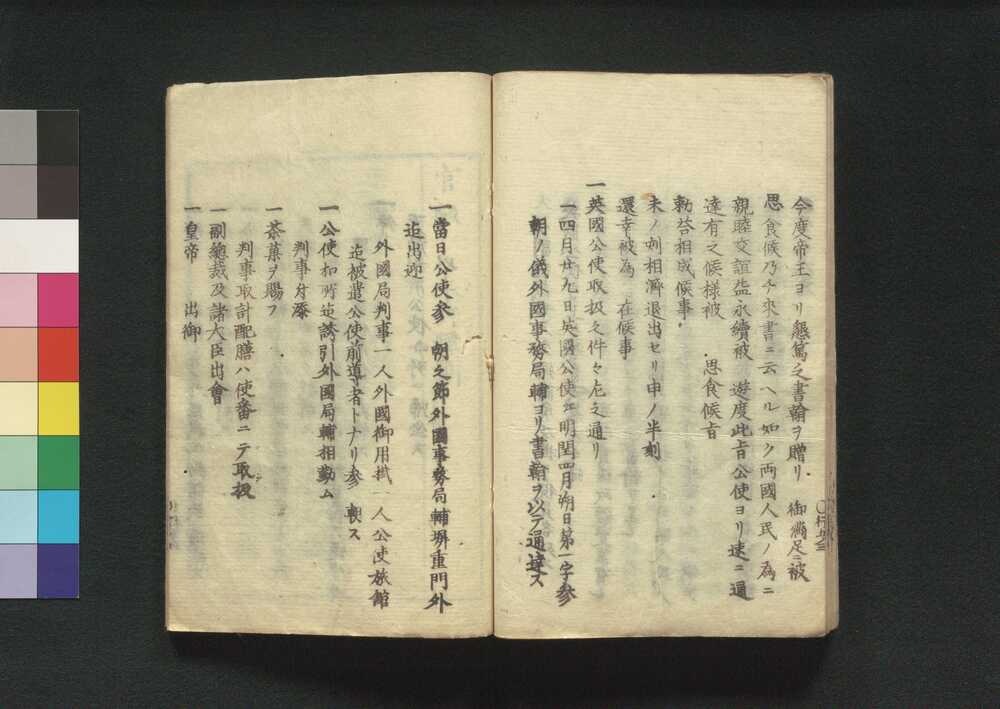 今度帝王ヨリ懇篤之書翰ヲ贈リ 御滿足ニ被
思食候乃チ來書ニ云ヘル如ク両國人民ノ為ニ
親睦交誼益永續被 遊度此旨公使ヨリ速ニ通
達有之候様被 思食候旨
勅答相成候事
未ノ刻相濟退出セリ申ノ半刻
還幸被為 在候事
一英國公使取扱之件々左之通リ
一四月廿九日英國公使江明閏四月朔日第一字參
朝ノ儀外國事務局輔ヨリ書翰ヲ以テ通達ス
一當日公使參 朝之節外國事務局輔塀重門外
迄出迎
外國局判事一人外國御用掛一人公使旅館
迄被遣公使前導者トナリ參 朝ス
一公使扣所迄誘引外國局輔相勤ム
判事付添
一茶菓ヲ賜フ
判事取計配膳ハ使番ニテ取扱
一副總裁及諸大臣出會
一皇帝 出御